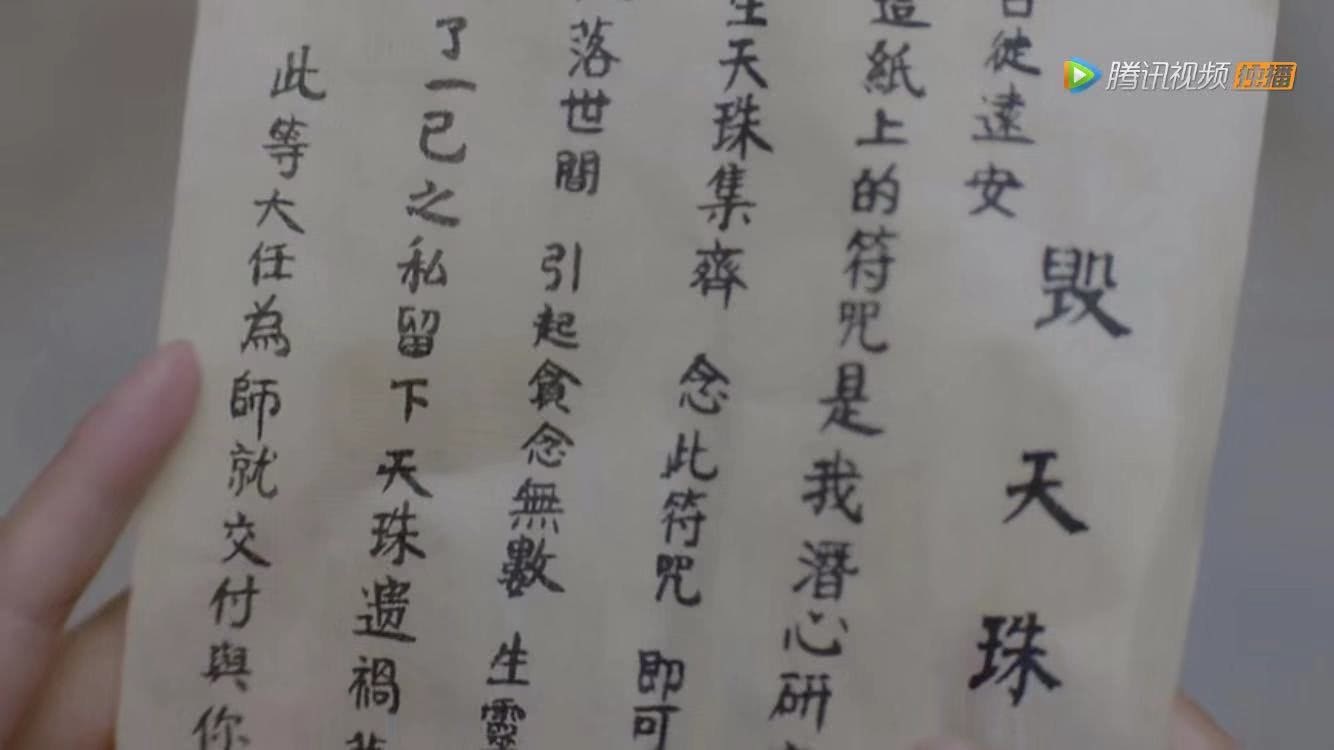 腾讯视频 独播
毁天珠
徒遠安
紙上的符咒是我潛心研
天珠集齊 念此符咒 即可
落世間 引起貪念無數 生靈
了一己之私留下天珠遗禍
此等大任為師就交付與你